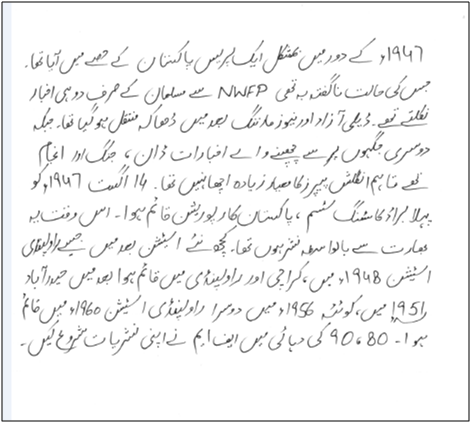 1947ء کے دور میں بمشکل ایک پریس پاکستان کے حصے میں آیا تھا۔
جس کی حالت ناگفتہ بہ تھی NWFP سے مسلمان کے صرف دو ہی اخبار
نکلتے تھے۔ ڈیلی آزاد اور نیوز مارننگ بعد میں ڈھاکہ منتقل ہو گیا تھا۔ جبکہ
دوسری جگہوں پر سے چھپنے والے اخبارات ڈان، جنگ اور انجام
تھے تاہم انگلش پیپرز کا معیار زیادہ اچھا نہیں تھا۔ 14 اگست 1947ء کو
پہلا براڈ کاسٹنگ سسٹم، پاکستان کارپوریشن قائم ہوا۔ اس وقت یہ
بھارت سے بالواسطہ نشر ہوں تھا۔ کچھ نئے اسٹیشن بعد میں جیسے راولپنڈی
اسٹیشن 1948ء میں، کراچی اور راولپنڈی میں قائم ہوا بعد میں حیدرآباد
1951ء میں، کوئٹہ 1956ء میں دوسرا راولپنڈی اسٹیشن 1960ء میں قائم
ہوا۔ 80، 90 کی دہائی میں ایف ایم نے اپنی نشریات شروع کیں۔